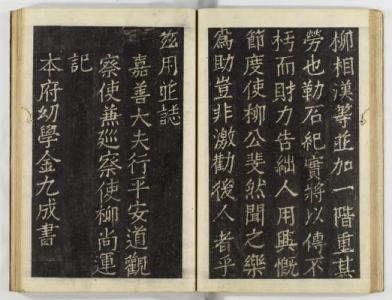 柳相漢等並加一階重其
勞也勒石紀實將以傳不
朽而財力告絀人用興慨
節度使柳公斐然聞之樂
爲助豈非激勸後人者乎
玆用並誌
嘉善大夫行平安道觀
察使兼巡察使柳尚運
記
本府幼學金九成書